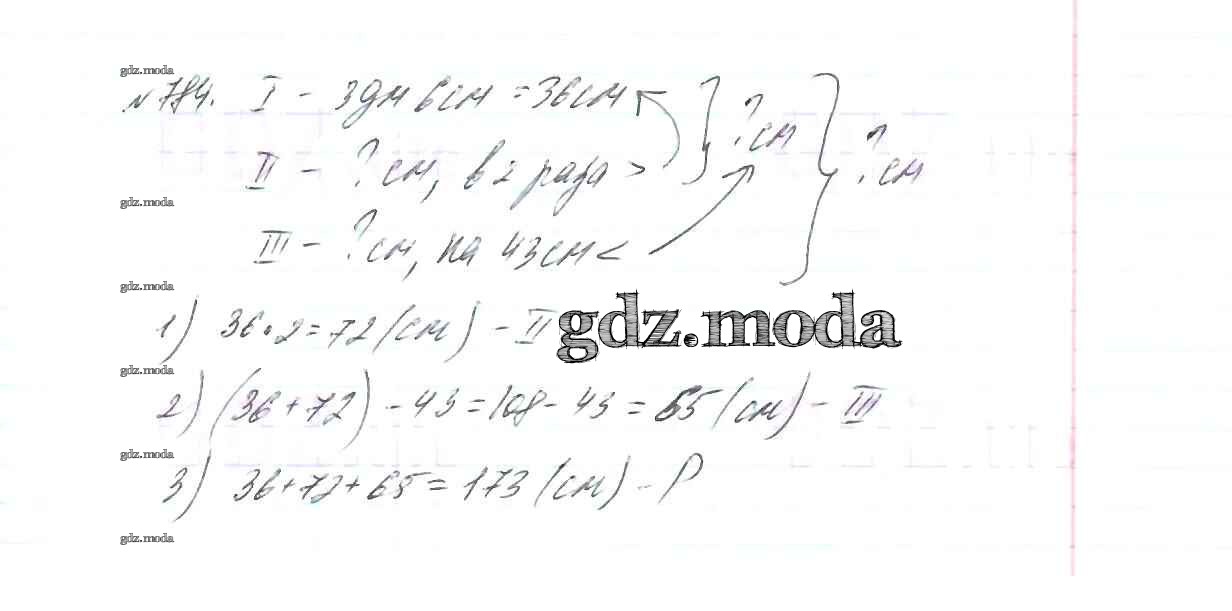 gdz.moda
№ 784. I – 3дм 6см = 36см } ?см } ?см
II – ?см, в 2 раза >
gdz.moda
III – ?см, на 43см <
gdz.moda
1) 36·2=72(см) – II
gdz.moda
gdz.moda
2) (36+72) – 43 = 108 – 43 = 65 (см) – III
gdz.moda
3) 36+72+65 = 173 (см) – P
gdz.moda